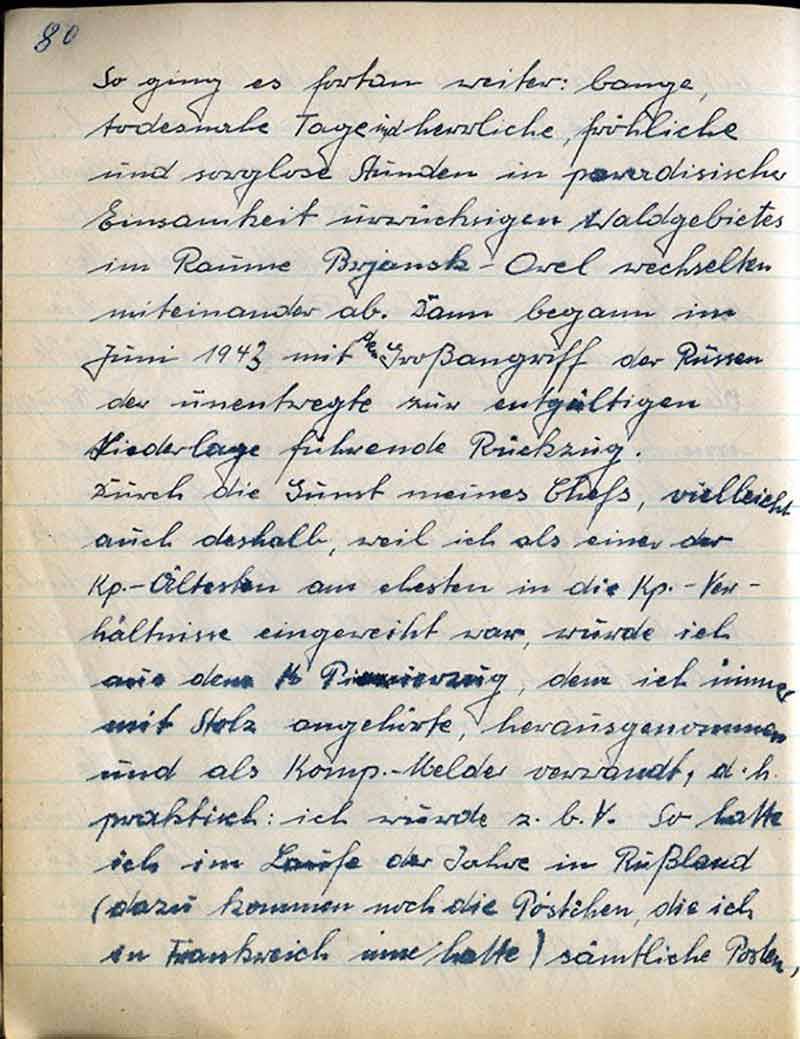 80
So ging es fortan weiter: bange,
todesnahe Tage und herrliche, fröhliche
und sorglose Stunden in paradisischer
Einsamkeit urwüchsigen Waldgebietes
im Raume Brjansk - Orel wechselten
miteinander ab. Dann begann im
Juni 1943 mit dem Großangriff der Russen
der unentwegte zur entgültigen
Niederlage führende Rückzug.
Durch die Gunst meines Chefs, vielleicht
auch deshalb, weil ich als einer der
Kp.-Ältesten am ehesten in die Kp.-Ver-
hältnisse eingeweiht war, wurde ich
aus dem Pionierzug, dem ich immer
mit Stolz angehörte, herausgenommen
und als Komp.-Melder verwandt, d.h.
praktisch: ich wurde z.b.V. So hatte
ich im Laufe der Jahre in Rußland
(dazu kommen noch die Pöstchen, die ich
in Frankreich inne hatte) sämtliche Posten,